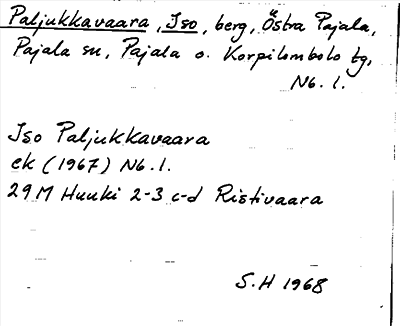 Paljukkavaara, Iso, berg, Östra Pajala,
Pajala sn, Pajala o. Korpilombolo tg,
Nb. l.
Iso Paljukkavaara
ek (1967) Nb. l.
29M Huuki 2-3 c-d Ristivaara
S.H 1968